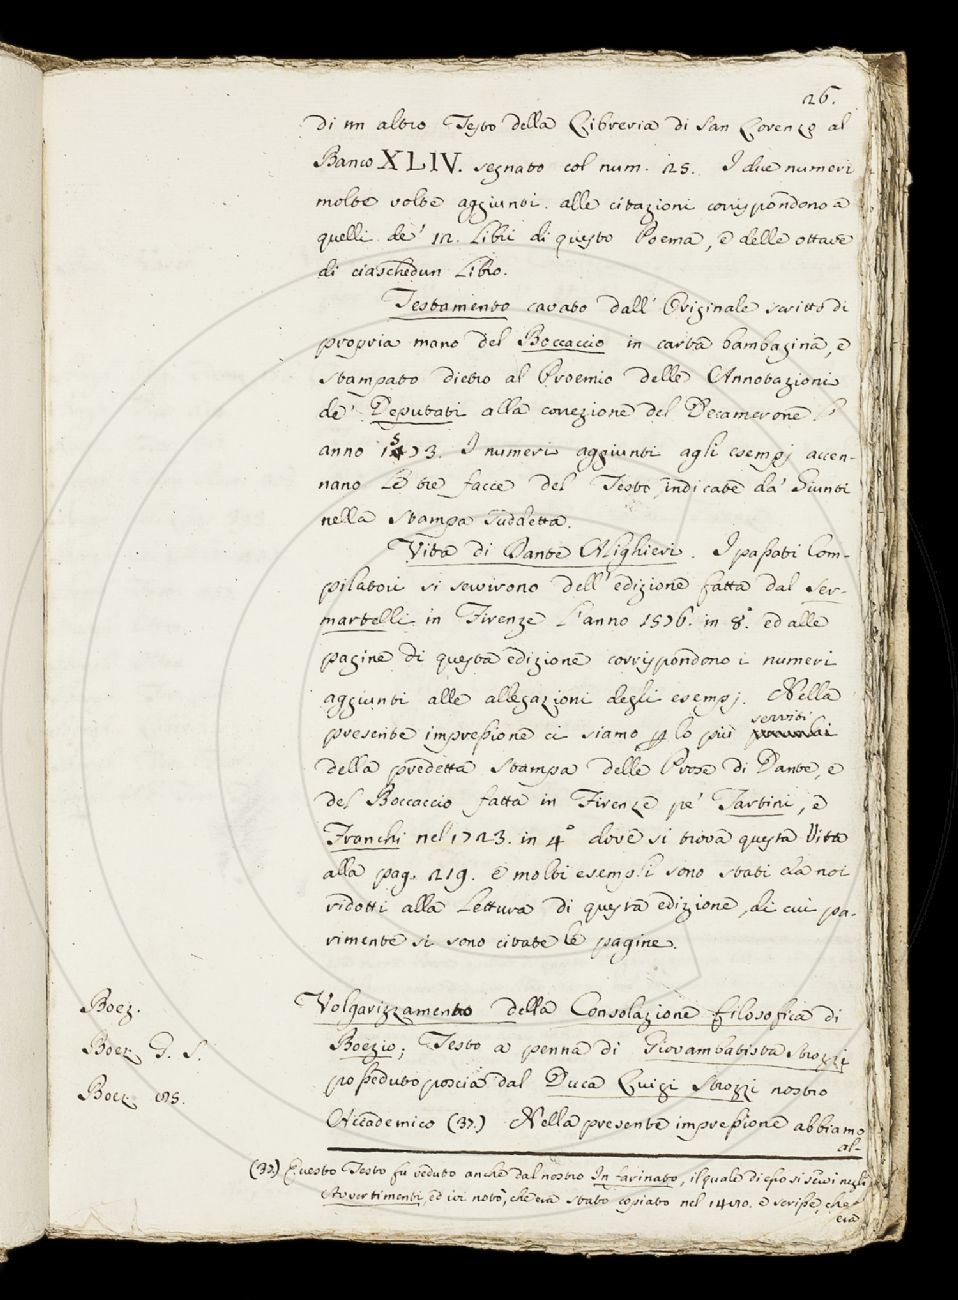 26.
di un altro Testo della Libreria di San Lorenzo al
Banco XLIV. segnato col num. 25. I due numeri
molte volte aggiunti alle citazioni corrispondono a
quelli de' 12. Libri di questo Poema, e delle ottave
di ciaschedun Libro.
Testamento cavato dall' Originale scritto di
propria mano del Boccaccio in carta bambagina, e
stampato dietro al Proemio delle Annotazioni
de' Deputati alla correzione del Decamerone l'
anno 1573. I numeri aggiunti agli esempj accen-
nano le tre facce del Testo indicate da' Giunti
nella stampa suddetta.
Vita di Dante Alighieri. I passati Com-
pilatori si servirono dell' edizione fatta dal Ser-
martelli in Firenze l'anno 1576. in 8.° ed alle
pagine di questa edizione corrispondono i numeri
aggiunti alle allegazioni degli esempj. Nella
presente impressione ci siamo p lo più serviti
della predetta stampa delle Prose di Dante, e
del Boccaccio fatta in Firenze pe' Tartini, e
Franchi nel 1723. in 4.° dove si trova questa Vita
alla pag. 219. e molti esempli sono stati da noi
ridotti alla Lettura di questa edizione, di cui pa-
rimente si sono citate le pagine.
Boez.
Boez. G. S.
Boez. 
Volgarizzamento della Consolazione filosofica di
Boezio; Testo a penna di Giovambatista Strozzi
posseduto poscia dal Duca Luigi Strozzi nostro
Accademico (37.) Nella presente impressione abbiamo
al-
(37.) Questo Testo fu veduto anche dal nostro Infarinato, il quale di esso si servì negli
Avvertimenti, ed ivi notò, che era stato copiato nel e scrisse, che
era